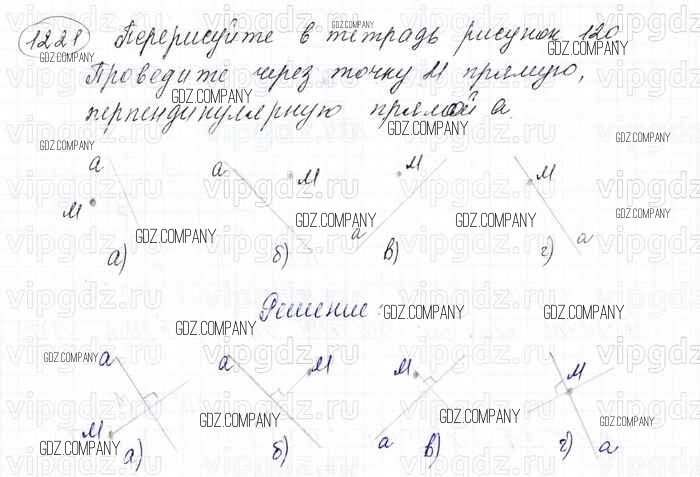 1221 Перерисуйте в тетрадь рисунок 120.
Проведите через точку М прямую,
перпендикулярную прямой а.
а М а М М М
а а
а) б) в) г)
Решение:
а а М М М
М а а
а) б) в) г)
GDZ.COMPANY
vipgdz.ru